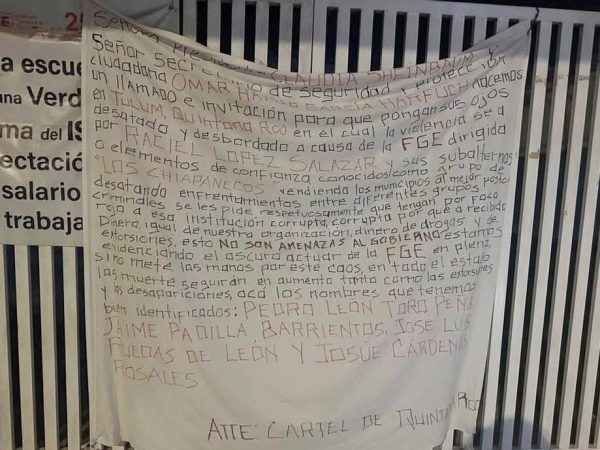 25
a escue
una Verd
ma del IS
ectació
salario
trabaja
Señora CLAUDIA SHEINBAUM Y
Señor Secretario de seguridad y protección
ciudadana OMAR HARFUCH hacemos
un llamado e invitación para que pongan sus ojos
en TULUM, QUINTANA ROO en el cual la violencia se a
desatado y desbordado a causa de la FGE dirigida
por RACIEL LOPEZ SALAZAR y sus subalternos
o elementos de confianza conocidos como grupo de
"LOS CHIAPANECOS vendiendo los municipios al mejor postor
desatando enfrentamientos entre diferentes grupos
criminales se les pide respetuosamente que tengan por foco
rojo a esa institucion corrupta, corrupta por qué a recibido
Dinero igual de nuestra organización, dinero de drogas y de
extorsiones, esto NO SON AMENAZAS AL GOBIERNO estamos
evidenciando el oscuro actuar de la FGE en pleno,
si no mete las manos por este caos, en todo el estado
las muerte seguirán en aumento tanto como las extorsiones
y las desapariciones, acá los nombres que tenemos
bien identificados: PEDRO LEON TORO PEÑA
JAIME PADILLA BARRIENTOS, JOSE LUIS
RUEDAS DE LEÓN Y JOSUÉ CÁRDENAS
ROSALES
ATTE: CARTEL DE QUINTANA ROO